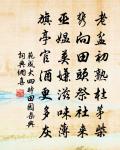 老盆初熟杜茅柴
攜向田頭祭社來
巫媼莫嫌滋味薄
旗亭官酒更多灰
范成大四時田園雜興
詞典網